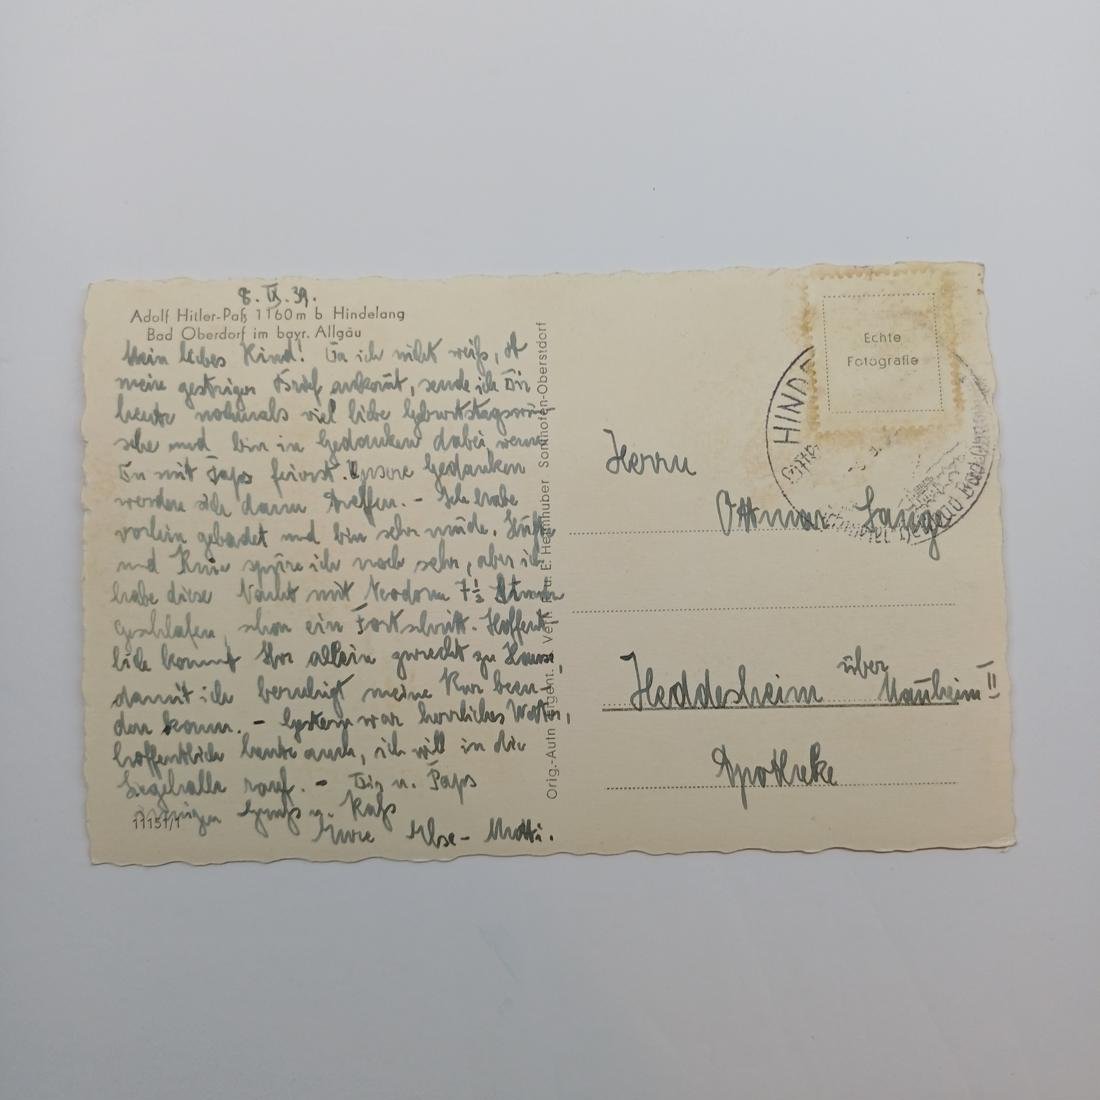 8. IX. 39.
Adolf Hitler-Paß 1160 m b Hindelang
Bad Oberdorf im bayr. Allgäu
Mein liebes Kind! Da ich nicht weiß, ob
meine gestrigen Brief ankommt, sende ich Dir
heute nochmals viel liebe Geburtstagswün-
sche und bin in Gedanken dabei, wenn
Du mit Paps feierst. Unsere Gedanken
werden sich dann treffen. - Ich habe
vorhin gebadet und bin sehr müde. Hüfte
und Knie spüre ich noch sehr, aber ich
habe diese Nacht mit 7 ½ Stunden
geschlafen, schon ein Fortschritt. Hoffent-
lich kommt Ihr allein zurecht zu Hause,
damit ich beruhigt meine Kur been-
den kann. - Gestern war herrliches Wetter,
hoffentlich heute auch, ich will in die
Liegehalle rauf. - Dir u. Paps
innigen Gruß u. Kuß
Eure Else-Mutti.
11151/1
Sonthofen-Oberstdorf
Echte
Fotografie
HINDE
Herrn
Ottmar Lange
Heddesheim über Mannheim II
Apotheke